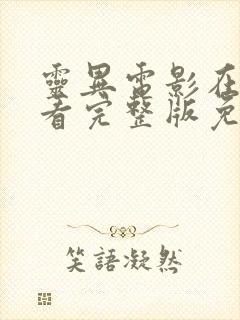 靈異電影在
看完整版免
笑語凝然